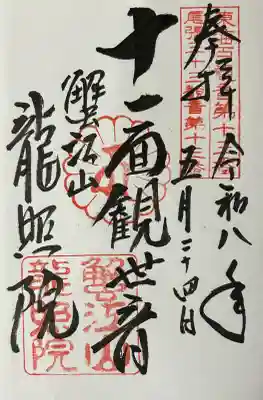 奉拝 令和八年
五月二十四日
東海百観音第十三番
尾張三十三観音第十三番
十一面観世音
蟹江山
龍照院
蟹江山
龍照院